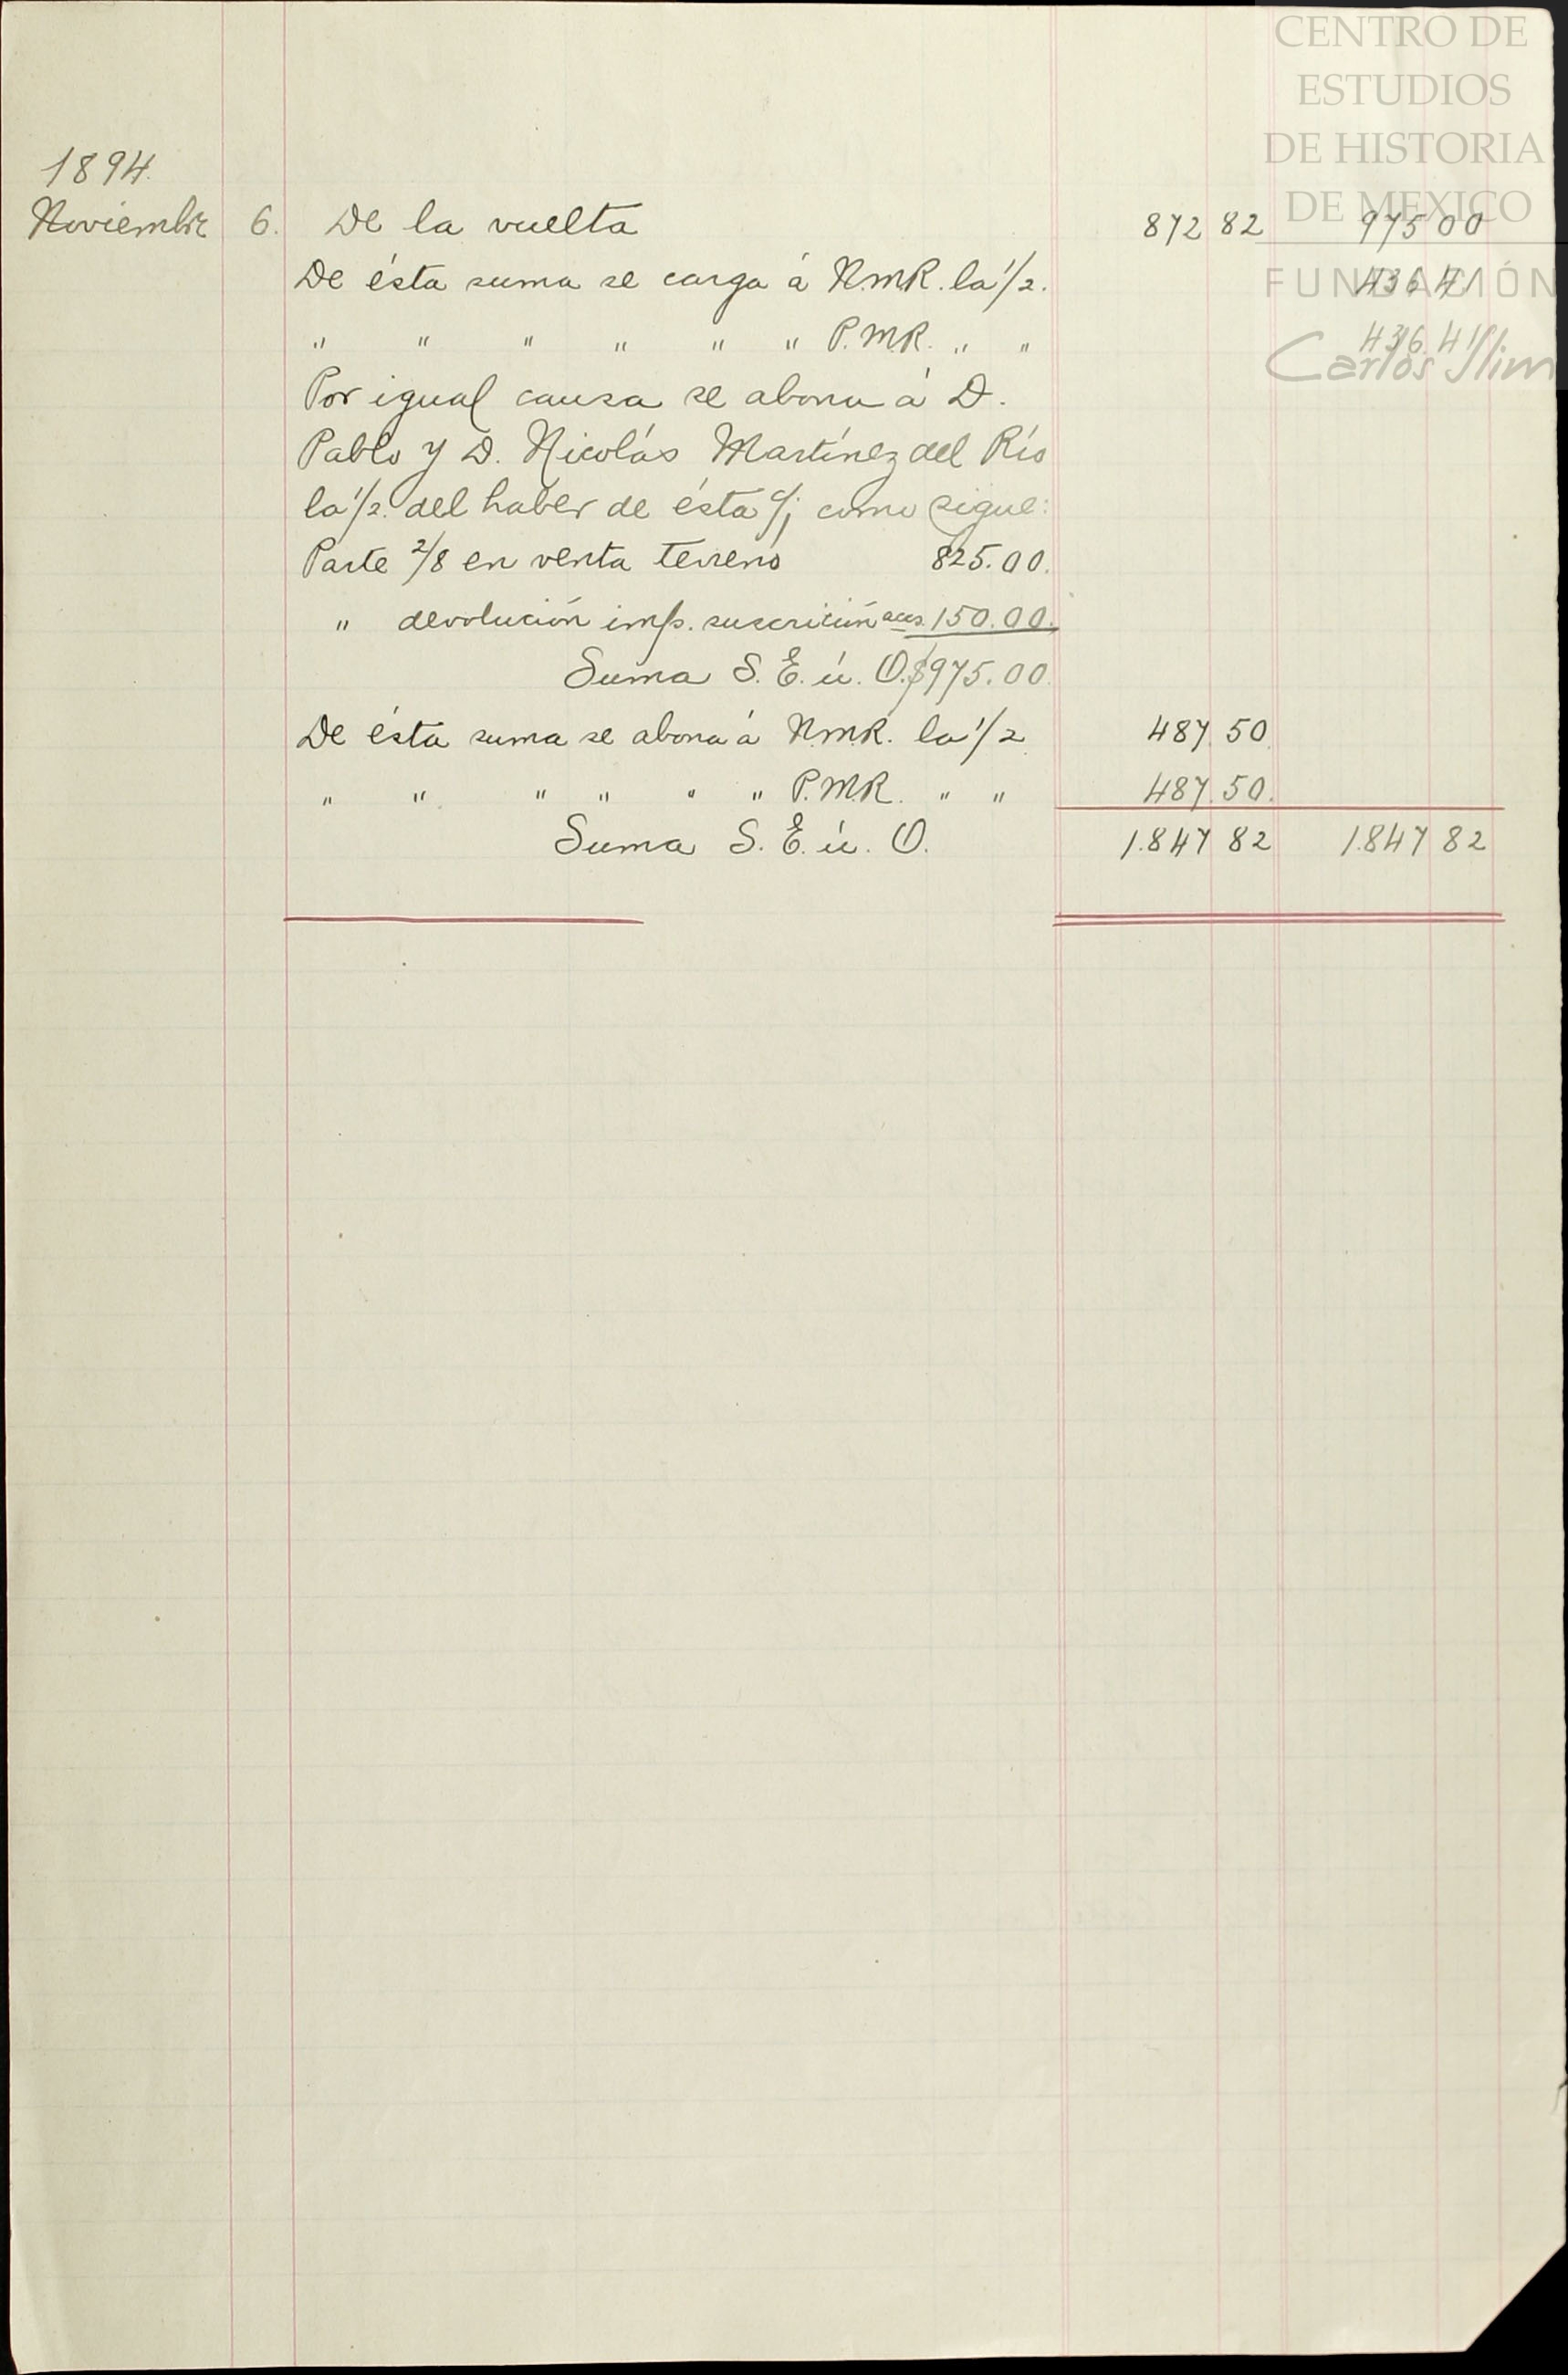 CENTRO DE
ESTUDIOS
DE HISTORIA
DE MEXICO
FUNDACIÓN
Carlos Slim
1894.
Noviembre 6. De la vuelta 872 82 975 00
De ésta suma se carga á N.M.R. la 1/2. 436 41
" " " " " " P.M.R. " " 436.41
Por igual causa se abona á D.
Pablo y D. Nicolás Martínez del Río
la 1/2. del haber de ésta c/; como sigue:
Parte 2/8 en venta terreno 825.00.
" devolución imp. suscrición accs. 150.00.
Suma S. E. ú. O. $975.00.
De ésta suma se abona á N.M.R. la 1/2 487.50
" " " " " " P.M.R. " " 487.50.
Suma S. E. ú. O. 1.847 82 1.847 82